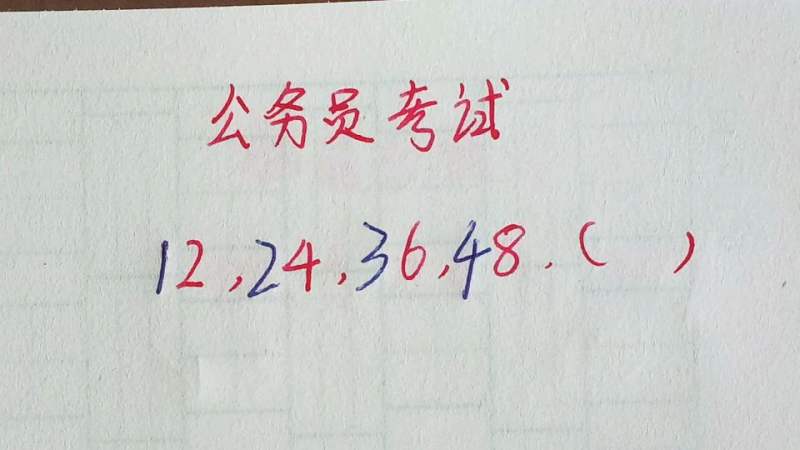 公务员考试
12,24,36,48,( )